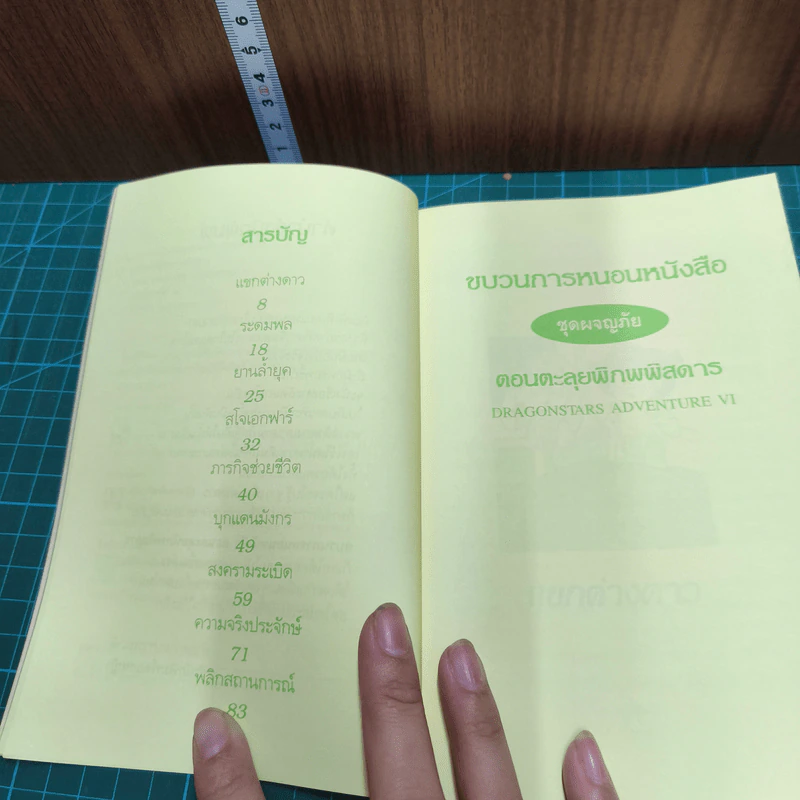 1 2 3 4 5 6
สารบัญ
แขกต่างดาว
8
ระดมพล
18
ยานล้ำยุค
25
สโจเอกฟาร์
32
ภารกิจช่วยชีวิต
40
บุกแดนมังกร
49
สงครามระเบิด
59
ความจริงประจักษ์
71
พลิกสถานการณ์
83
ขบวนการหนอนหนังสือ
ชุดผจญภัย
ตอนตะลุยพิภพพิสดาร
DRAGONSTARS ADVENTURE VI